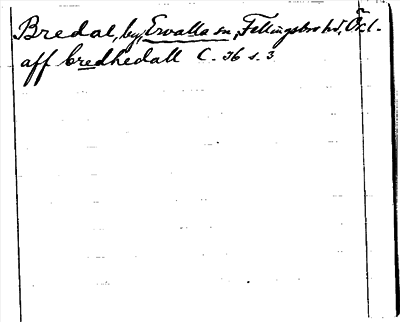 Bredal, by, Ervalla sn, Fellingsbro hd, Ör.l.
aff bredhedall C. 36 s. 3